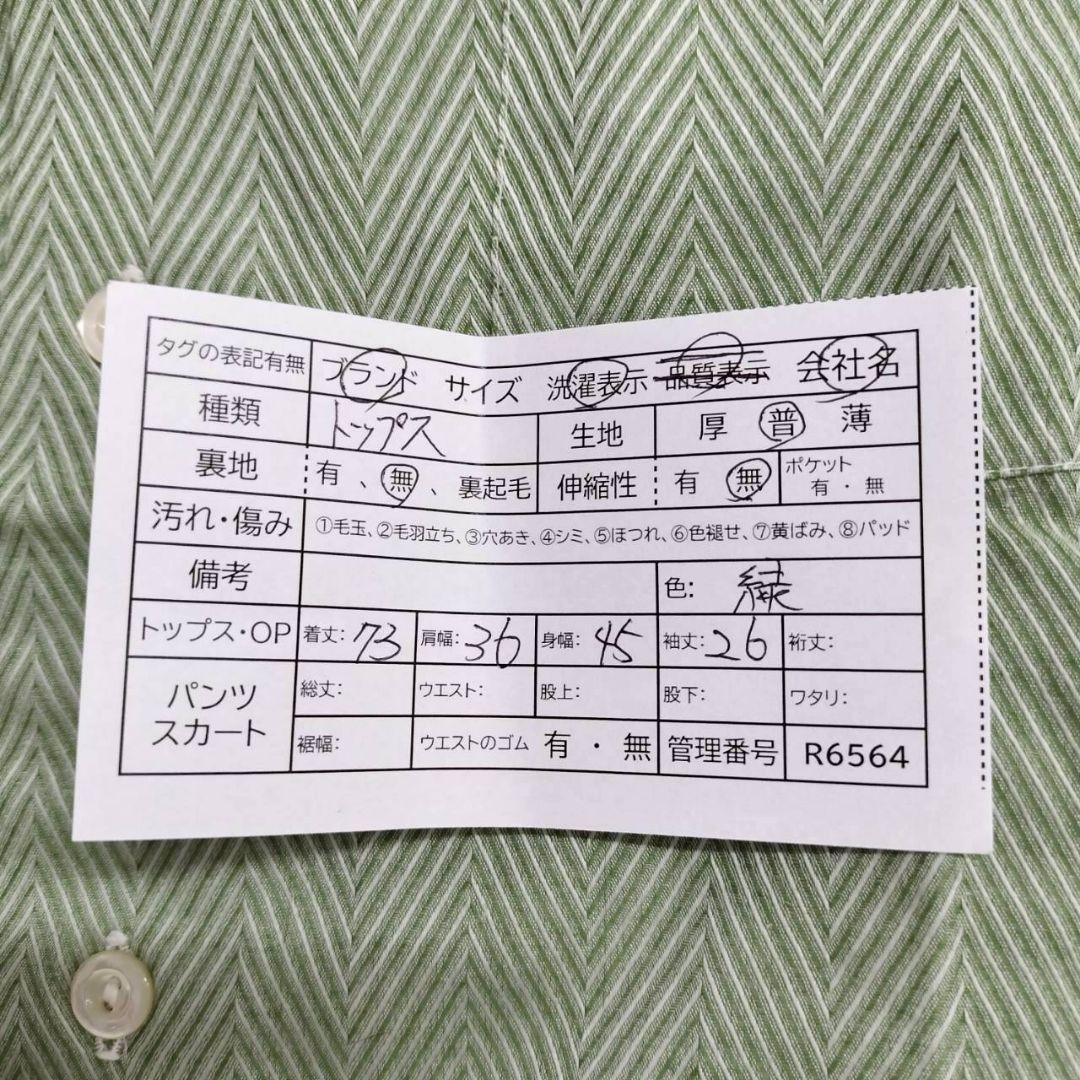 タグの表記有無 ブランド サイズ 洗濯表示 品質表示 会社名
種類 トップス 生地 厚 普 薄
裏地 有 、 無 、 裏起毛 伸縮性 有 無 ポケット 有 ・ 無
汚れ・傷み ①毛玉、②毛羽立ち、③穴あき、④シミ、⑤ほつれ、⑥色褪せ、⑦黄ばみ、⑧パッド
備考 色: 緑
トップス・OP 着丈: 73 肩幅: 36 身幅: 45 袖丈: 26 裄丈:
パンツ スカート 総丈: ウエスト: 股上: 股下: ワタリ:
裾幅: ウエストのゴム 有 ・ 無 管理番号 R6564